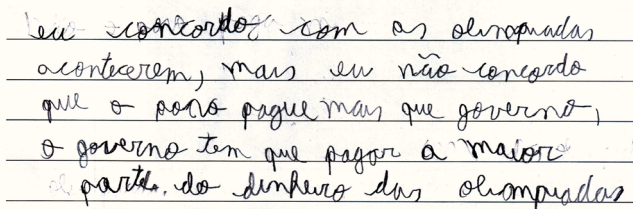 eu concordo com as olimpiadas
acontecerem, mais eu não concordo
que o povo pague mais que governo,
o governo tem que pagar a maior
parte do dinheiro das olimpiadas